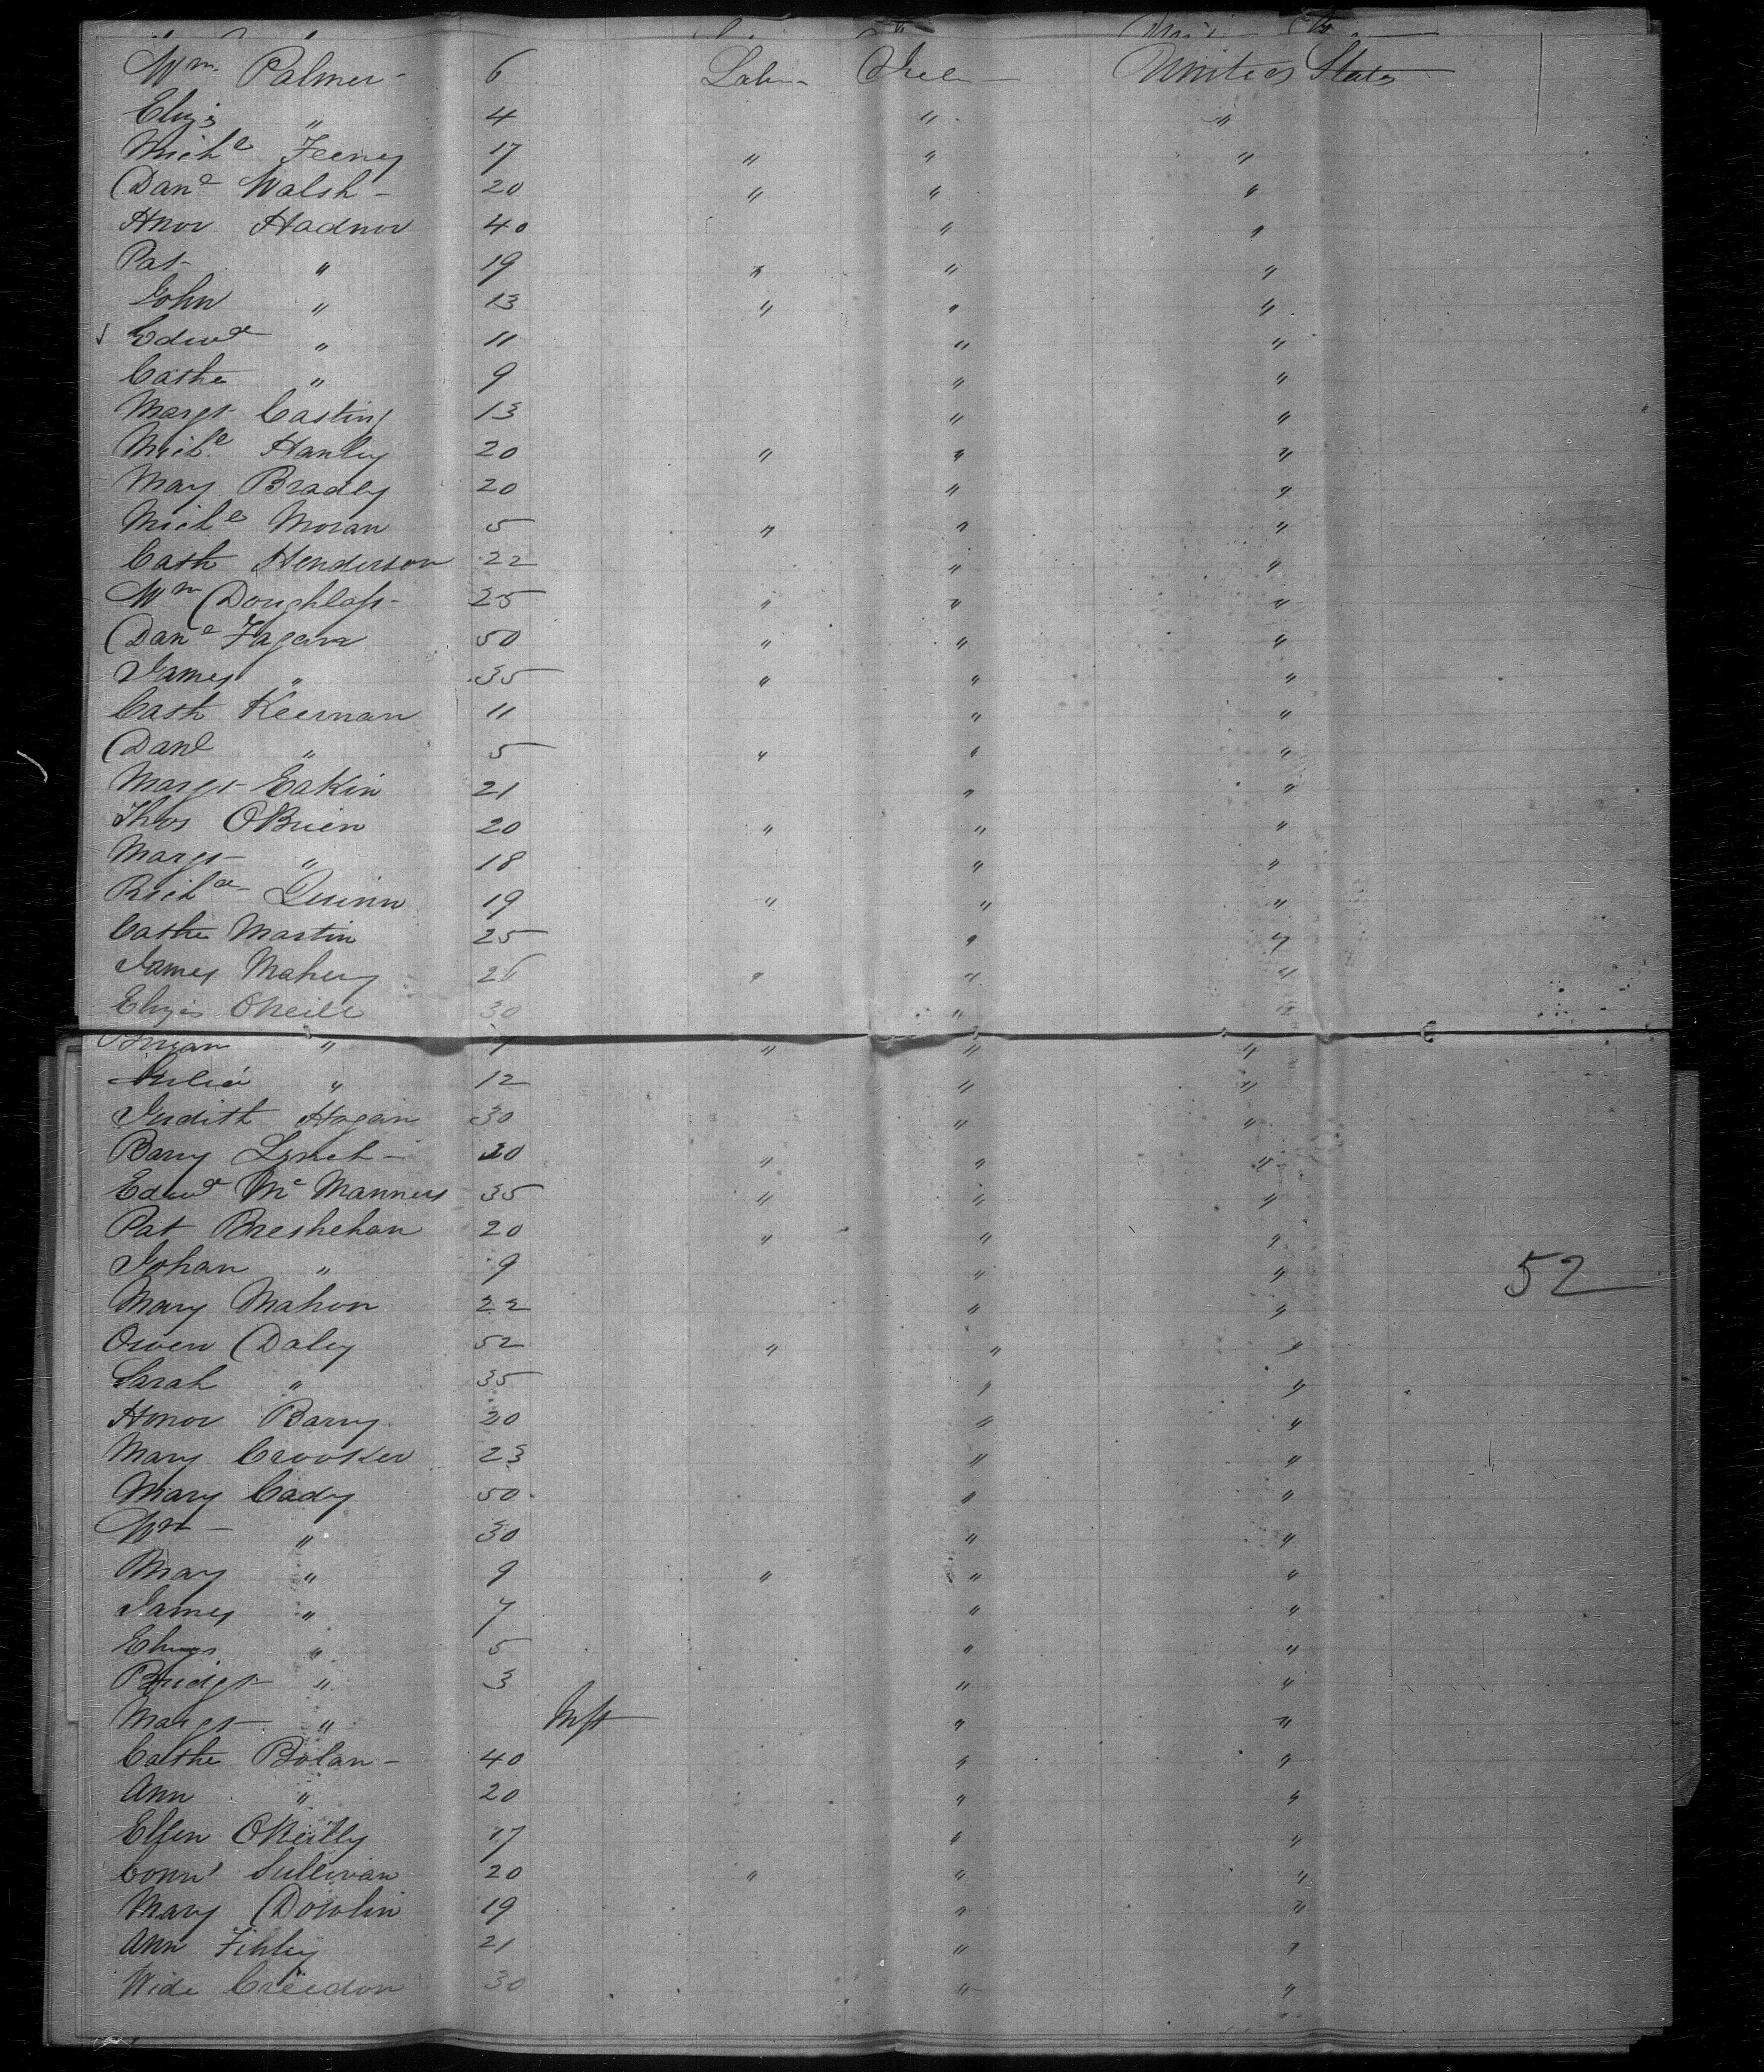 Wm Palmer - 6 Labr Irela United States
Eliza " 4 " "
Michl Feeney 17 " " "
Danl Walsh - 20 " " "
Hnor Hadnor 40 " "
Pat " 19 " " "
John " 13 " " "
Edwd " 11 " "
Cathe " 9 " "
Margt Casting 13 " "
Michl Hanley 20 " " "
Mary Bradley 20 " "
Michl Moran 5 " " "
Cath Henderson 22 " "
Wm Doughlass - 25 " " "
Danl Fagan 50 " " "
James " 35 " " "
Cath Keernan 11 " "
Danl " 5 " " "
Margt Eakin 21 " "
Thos OBrien 20 " " "
Margt " 18 " "
Richd Quinn 19 " " "
Cathe Martin 25 " "
James Mahery 26 " " "
Eliza ONeill 30 " "
Bryan " 7 " " "
Julia " 12 " "
Judith Hogan 30 " "
Barry Lynch - 20 " " "
Edwd Mc Manners 35 " " "
Pat Breshehan 20 " " "
Johan " 9 " "
52
Mary Mahon 22 " "
Owen Daley 52 " " "
Sarah " 35 " "
Honor Barry 20 " "
Mary Crooker 23 " "
Mary Cady 50 " "
Wm " 30 " "
Mary " 9 " " "
James " 7 " "
Eliza " 5 " "
Bridgt " 3 " "
Margt " Inft " "
Cathe Bolan - 40 " "
Ann " 20 " "
Ellen OReilly 17 " "
Corns Sullivan 20 " " "
Mary Dowlin 19 " "
Ann Fihley 21 " "
Creedon 30 " "